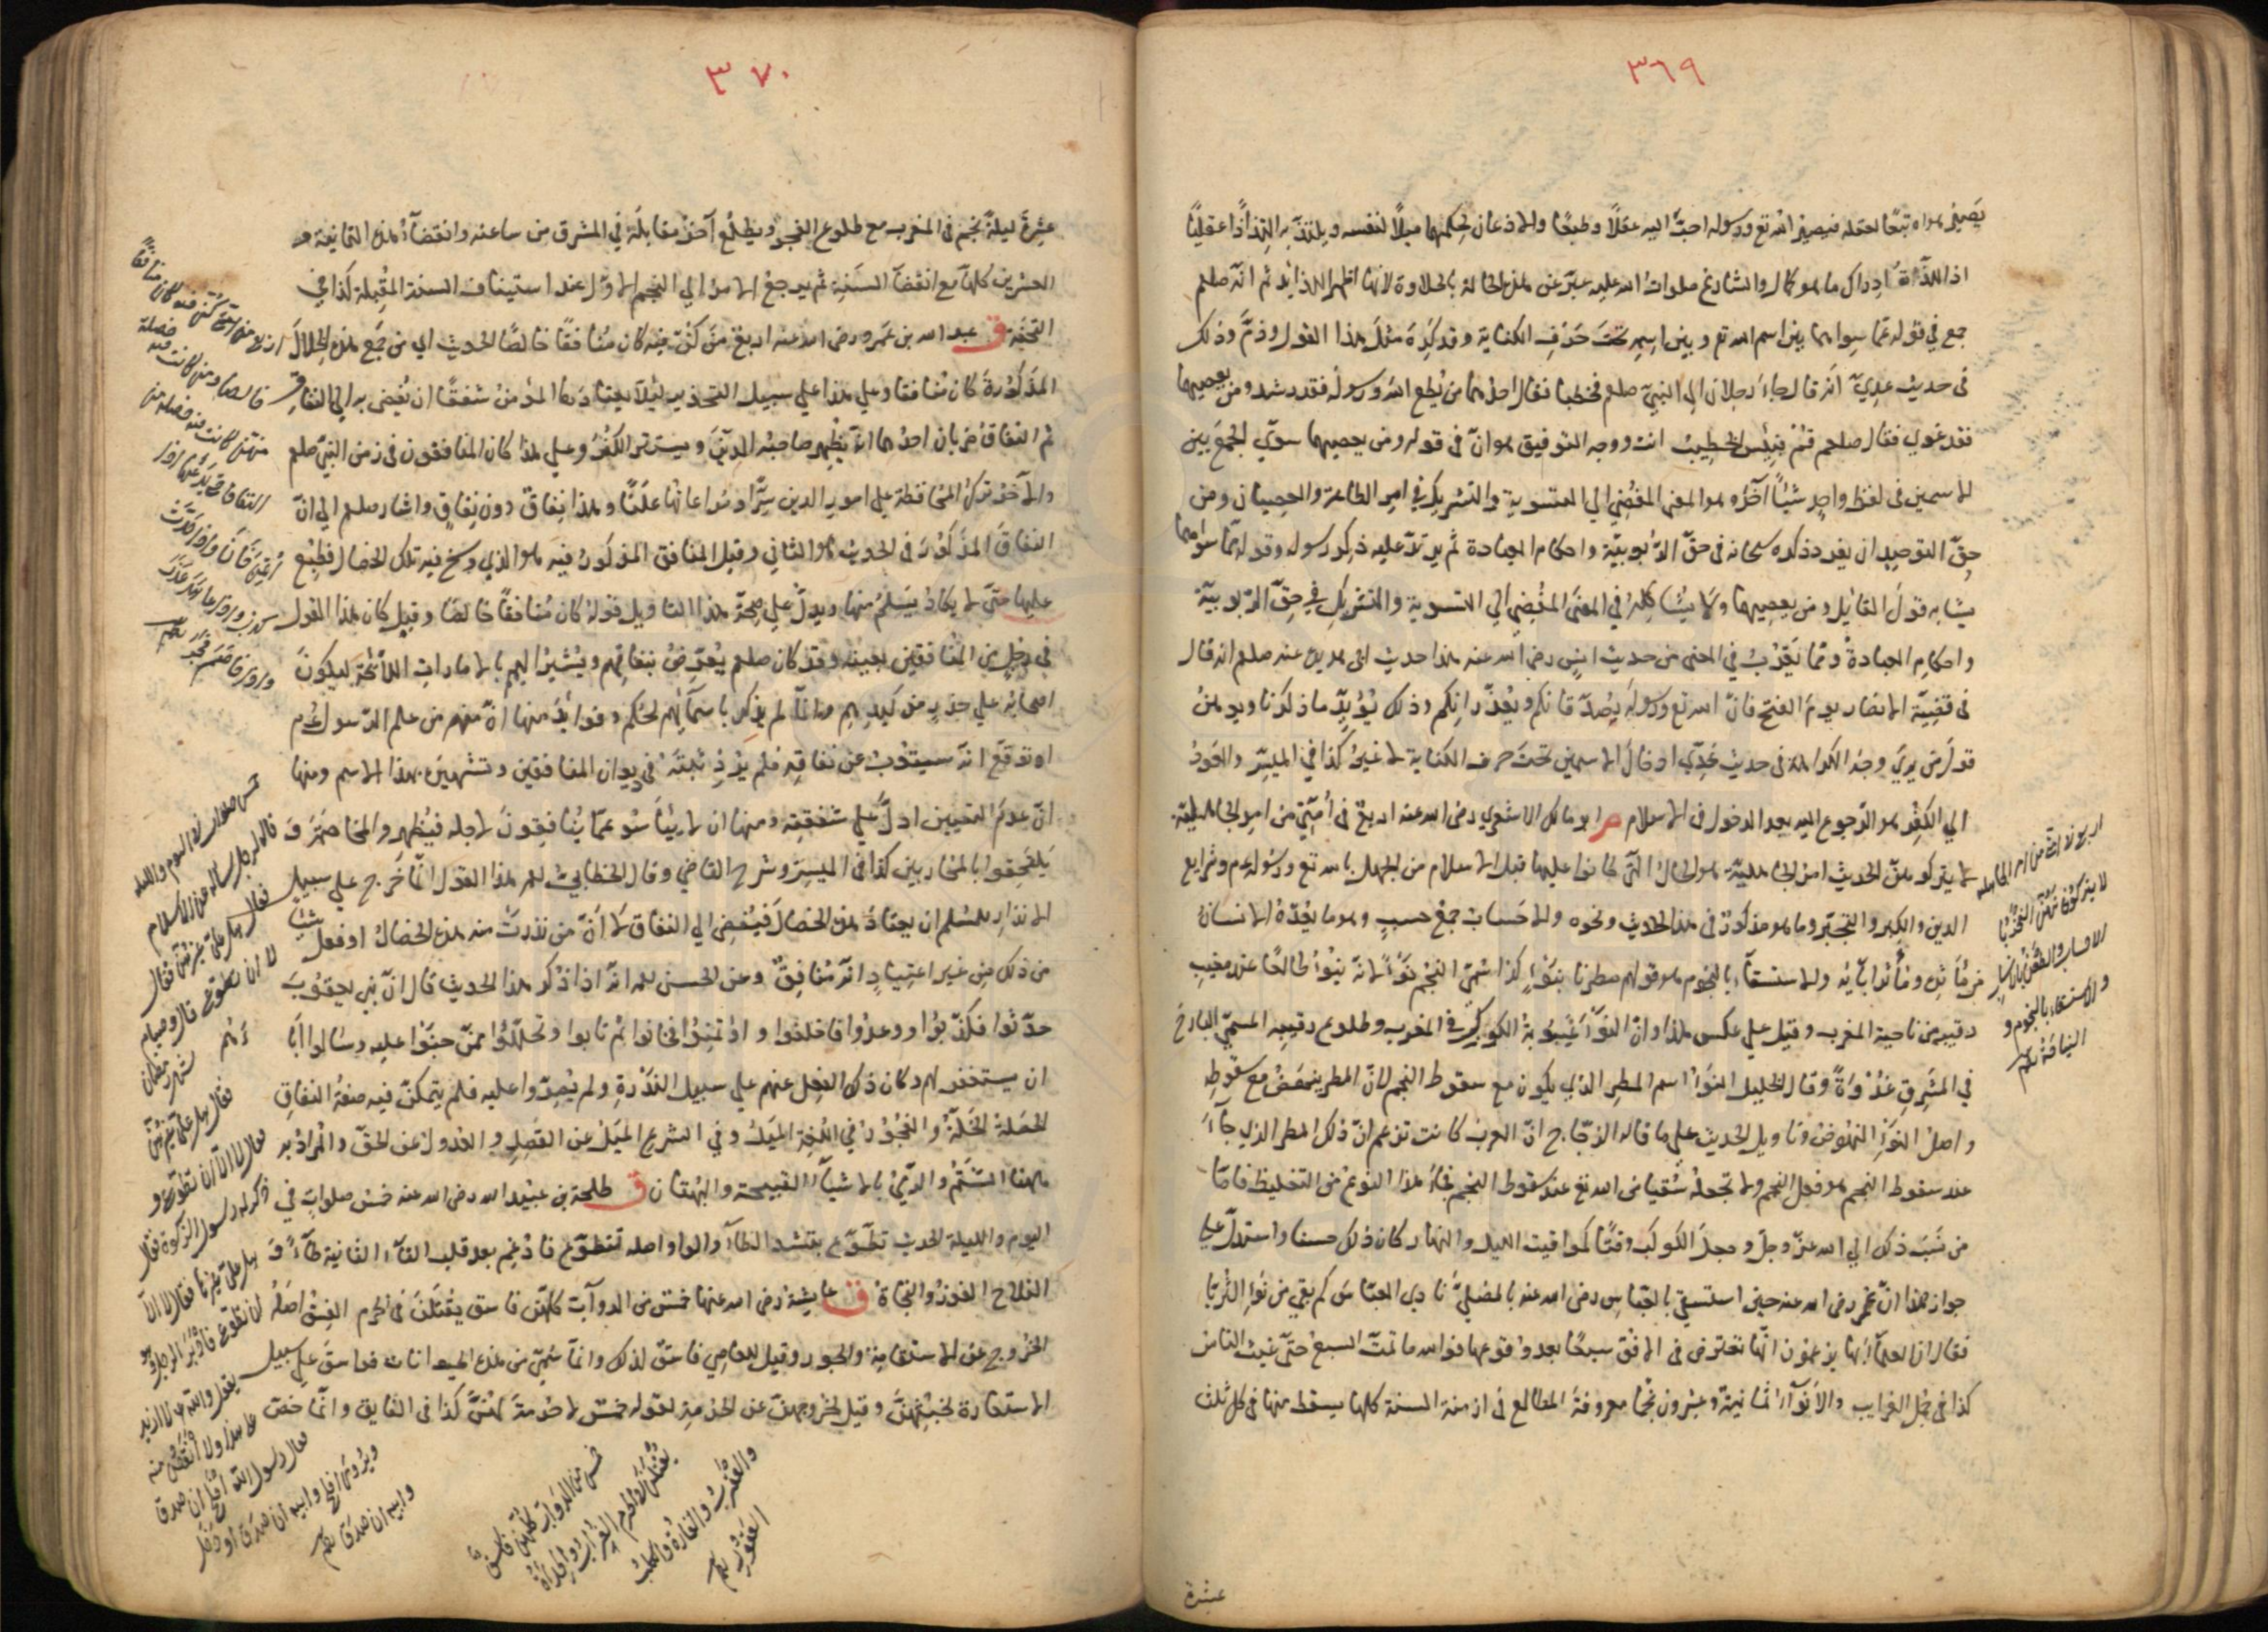 ٣٦٩
يصير هواه تبعًا لعقله فيصير الله تع ورسوله احبّ اليه عقلًا وطبعًا والاذعان لحكمهما ميلًا لنفسه ويلتذّ به التذاذًا عقليًا
اذ اللذّة ادراك ما هو كمال والشارع صلوات الله عليه عبّر عن هذه الحالة بالحلاوة لانها اظهر اللذائذ ثم انه صلعم
جمع في قوله مما سواهما بين اسم الله تع وبين اسمه تحت حرف الكناية وقد كره مثل هذا القول وذمّ وذلك
في حديث عديّ انه قال جاء رجلان الى النبيّ صلعم فخطبا فقال احدهما من يطع الله ورسوله فقد رشد ومن يعصيهما
فقد غوى فقال صلعم قم بئس الخطيب انت ووجه التوفيق هو انّ في قوله ومن يعصيهما سوّى الجمع بين
الاسمين في لفظ واحد شيئًا آخر وهو المعنى المفضي الى التسوية والتشريك في امر الطاعة والعصيان ومن
حقّ التوحيد ان يفرد ذكره سبحانه في حقّ الربوبيّة واحكام العبادة ثم يرتّب عليه ذكر رسوله وقوله ممّا سواهما
يشابه قول القائل ومن يعصيهما ولا يشاكله في المعنى المفضي الى التسوية والتشريك في حقّ الربوبية
واحكام العبادة وممّا يقرب في المعنى من حديث انس رضى الله عنه هذا حديث ابى هريرة عنه صلعم انه قال
في قضيّة الانصار يوم الفتح فانّ الله تع ورسوله يصدّقانكم ويعذرانكم وذلك يؤيّد ما ذكرنا ويوهن
قول من يرى وجه الكراهة في حديث عديّ ادخال الاسمين تحت حرف الكناية لا غير كذا في الميسّر والعود
الى الكفر هو الرجوع اليه بعد الدخول في الاسلام م ابو مالك الاشعري رضى الله عنه اربع في امّتي من امر الجاهلية
لا يتركونهنّ الحديث امر الجاهلية هو الحال التي كانوا عليها قبل الاسلام من الجهل بالله تع ورسوله م وشرايع
الدين والكبر والتجبّر وما هو مذكور في هذا الحديث ونحوه والاحساب جمع حسب وهو ما يعدّه الانسان
من مآثره ومآثر آبائه والاستسقاء بالنجوم هو قولهم مطرنا بنوء كذا سمّي النجم نوءًا لانه ينوء طالعًا عند مغيب
رقيبه من ناحية المغرب وقيل على عكس هذا وانّ النوء غيبوبة الكوكب في المغرب وطلوع رقيبه المسمّى البارح
في المشرق غدوةً وقال الخليل النوء اسم المطر الذي يكون مع سقوط النجم لانّ المطر ينهض مع سقوطه
واصل النوء النهوض وتاويل الحديث على ما قاله الزجّاج انّ العرب كانت تزعم انّ ذلك المطر الذي جاء
عند سقوط النجم هو فعل النجم ولا تجعله سقيا من الله تع عند سقوط النجم فجاء هذا النوع من التغليظ فامّا
من نسب ذلك الى الله عزّ وجلّ وجعل الكوكب وقتًا كمواقيت الليل والنهار كان ذلك حسنا واستدلّ على
جواز هذا انّ عمر رضى الله عنه حين استسقى بالعبّاس رضى الله عنه بالمصلّى نادى العبّاس كم بقي من نوء الثريّا
فقال ان العلماء بها يزعمون انّها تعترض في الافق سبعًا بعد وقوعها فوالله ما تمّت السبع حتّى غيث الناس
كذا في جمل الغرايب والانواء ثمانية وعشرون نجمًا معروفة المطالع في ازمنة السنة كلها يسقط منها في كل ثلث
عشرة
اربع في امّتى من امر الجاهلية
لا يتركونهنّ الفخر
بالاحساب والطعن في الانساب
والاستسقاء بالنجوم و
النياحة
٣٧٠
عشرة ليلة نجم في المغرب مع طلوع الفجر ويطلع آخر مقابله في المشرق من ساعته وانقضاء هذه الثمانية و
العشرين كلها مع انقضاء السنة ثم يرجع الامر الى النجم الاوّل عند استيناف السنة المقبلة كذا في
التحفة ق عبد الله بن عمرو رضى الله عنه اربع من كنّ فيه كان منافقًا خالصًا الحديث اى من جمع هذه الخلال
المذكورة كان منافقا وعلى هذا على سبيل التحذير لئلا يعتادها المؤمن شفقًا ان يفضي به الى النفاق
ثم النفاق ضربان احدهما ان يظهر صاحبه الدين ويستر الكفر وعلى هذا كان المنافقون في زمن النبيّ صلعم
والآخر ترك المحافظة على امور الدين سرًّا ومراعاتها علنًا وهذا نفاق دون نفاق واشار صلعم الى انّ
النفاق المذكور في الحديث هو الثاني وقيل المنافق المذكور فيه هو الذي رسخ فيه تلك الخصال فطبع
عليها حتّى لا يكاد يسلم منها ويدلّ على صحّة هذا التاويل قوله كان منافقًا خالصًا وقيل كان هذا القول
في رجل من المنافقين بعينه وقد كان صلعم يعرّض بنفاقهم ويشير اليهم بالامارات اللائحة ليكون
اصحابه على حذر من كيدهم وانما لم يذكر باسمائهم لحكم وفوايد منها انّ منهم من علم الرسول م
او توقّع انّه سيتوب عن نفاقه فلم يؤذ ثبته في ديوان المنافقين وتشهيره بهذا الاسم ومنها
انّ عدم التعيين ادلّ على شفقته ومنها ان لا يئسوا عمّا ينافقون لاجله فيظهروا المخاصمة و
يلتحقوا بالمحاربين كذا في الميسّر وشرح القاضي وقال الخطابي رحمه الله هذا القول انّما خرج على سبيل
الانذار للمسلم ان يعتاد هذه الخصال فيفضى الى النفاق لا انّ من ندرت منه هذه الخصال او فعل شيئًا
من ذلك من غير اعتياد انّه منافق وعن الحسن رحمه انّه اذا ذكر هذا الحديث قال انّ بني يعقوب
حدّثوا فكذّبوا ووعدوا فاخلفوا واؤتمنوا فخانوا ثم تابوا وتحلّلوا ممّن جنوا عليه وسالوا اباهم
ان يستغفر لهم وكان ذلك الفعل عنهم على سبيل الندرة ولم يصرّوا عليه فلم يتمكّن فيه صفة النفاق
الخصلة الخلّة والفجور في اللغة الميل وفي الشرع الميل عن القصد والعدول عن الحقّ والمراد به
ههنا الشتم والرمي بالاشياء القبيحة والبهتان ق طلحة بن عبيد الله رضى الله عنه خمس صلوات في
اليوم والليلة الحديث تطّوّع بتشديد الطاء والواو اصله تتطوّع فادغم بعد قلب التاء الثانية طاءً و
الفلاح الفوز والنجاة ق عايشة رضى الله عنها خمس من الدوابّ كلهنّ فاسق يقتلن في الحرم الفسق اصله
الخروج عن الاستقامة والجور وقيل للعاصي فاسق لذلك وانّما سمّي من هذه الحيوانات فواسق على سبيل
الاستعارة لخبثهنّ وقيل لخروجهنّ عن الحرمة لقوله خمس لا حرمة لهنّ كذا في الفايق وانّما خصّ
اربع من كنّ فيه كان منافقًا
خالصا ومن كانت فيه خصلة
منهنّ كانت فيه خصلة من
النفاق حتى يدعها اذا
اؤتمن خان واذا حدّث
كذب واذا عاهد غدر
واذا خاصم فجر
خمس صلوات في اليوم والليلة
قاله لرجل ساله عن الاسلام
فقال هل عليّ غيرهنّ فقال
لا الا ان تطوع قال وصيام
شهر رمضان
فقال هل عليّ غيره
فقال لا الا ان تطوّع و
ذكر له رسول الله الزكوة فقال
هل عليّ غيرها فقال لا الا
ان تطوع فادبر الرجل وهو
يقول والله لا ازيد
على هذا ولا انقص منه
فقال رسول الله افلح ان صدق
ويروى افلح وابيه ان صدق او دخل
وابيه ان صدق
خمس من الدوابّ كلهنّ فاسق
يقتلن في الحرم الغراب والحدأة
والعقرب والفارة والكلب
العقور